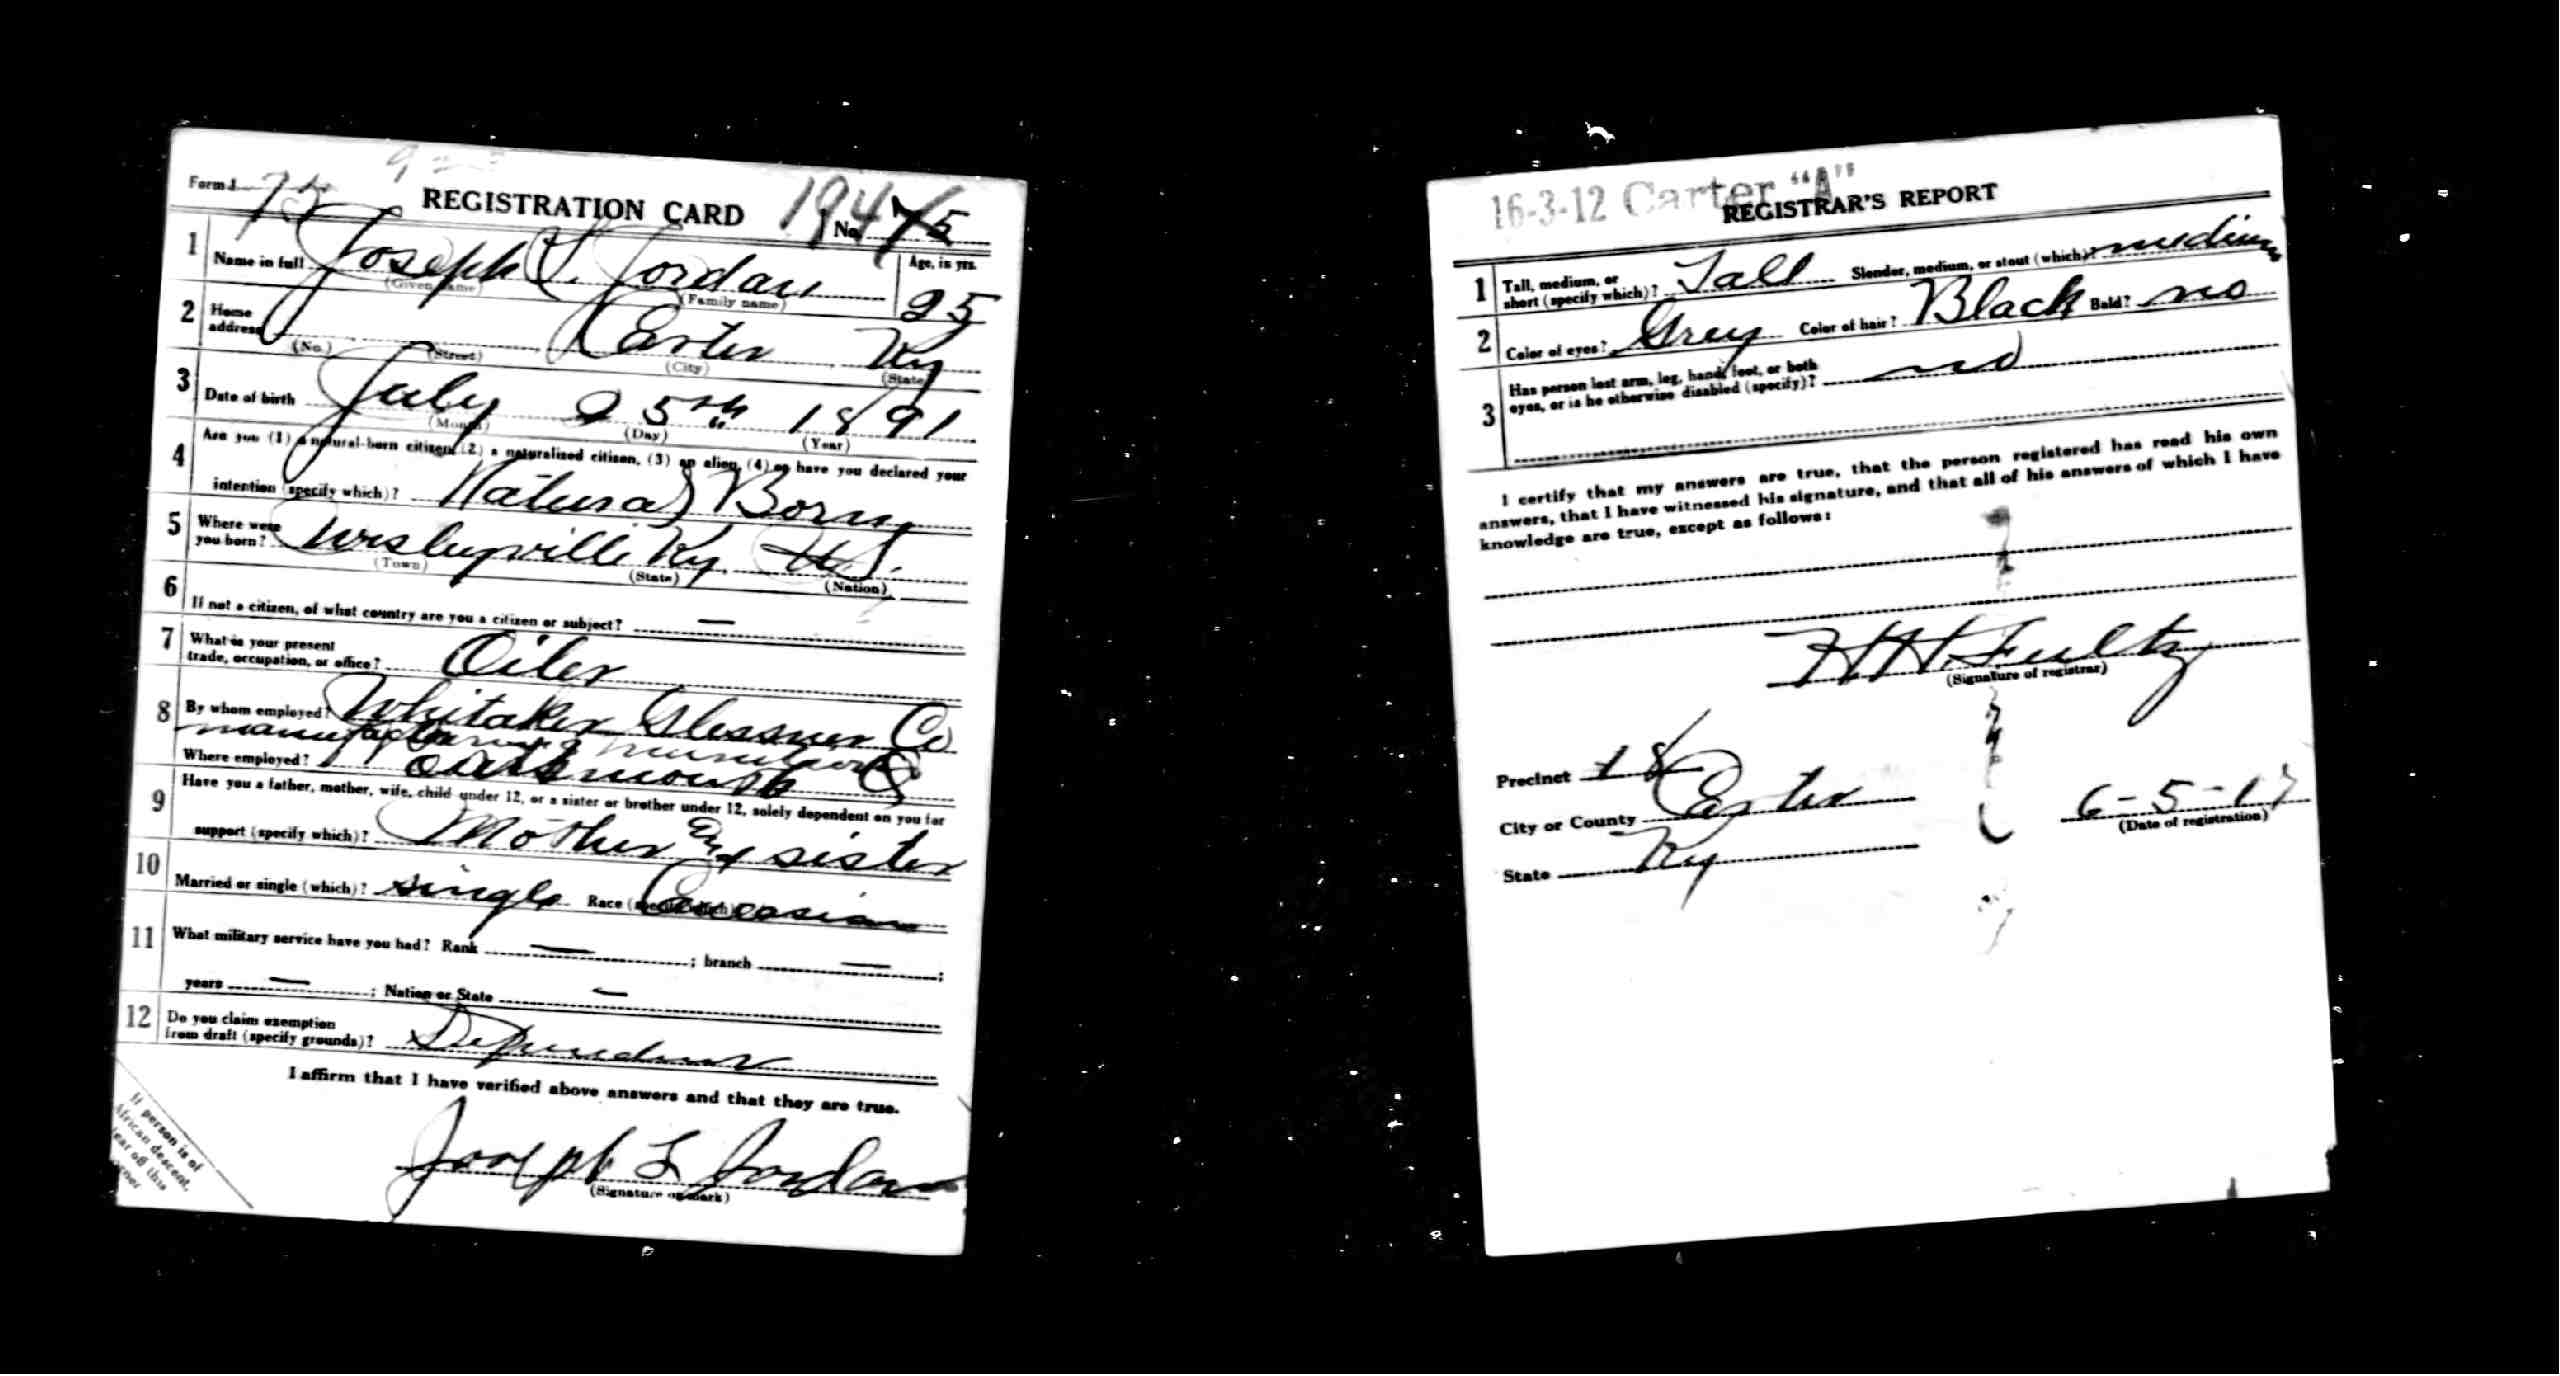 Form 1 75 REGISTRATION CARD No. 75
194
1 Name in full Joseph L. Jordan Age, in yrs.
(Given name) (Family name) 25
2 Home address Carter Ky
(No.) (Street) (City) (State)
3 Date of birth July 25th 1891
(Month) (Day) (Year)
4 Are you (1) a natural-born citizen, (2) a naturalized citizen, (3) an alien, (4) or have you declared your
intention (specify which)? Natural Born
5 Where were you born? Wesleyville Ky. U.S.
(Town) (State) (Nation)
6 If not a citizen, of what country are you a citizen or subject? —
7 What is your present
trade, occupation, or office? Oiler
8 By whom employed? Whitaker Glessner Co
manufacturing
Where employed? Portsmouth O
9 Have you a father, mother, wife, child under 12, or a sister or brother under 12, solely dependent on you for
support (specify which)? Mother and sister
10 Married or single (which)? single Race (specify which)? Caucasian
11 What military service have you had? Rank — ; branch — ;
years — ; Nation or State —
12 Do you claim exemption
from draft (specify grounds)?
I affirm that I have verified above answers and that they are true.
Joseph L Jordan
(Signature or mark)
If person is of
African descent,
tear off this
corner
16-3-12 Carter "A"
REGISTRAR'S REPORT
1 Tall, medium, or
short (specify which)? Tall Slender, medium, or stout (which)? medium
2 Color of eyes? Grey Color of hair? Black Bald? no
3 Has person lost arm, leg, hand, foot, or both
eyes, or is he otherwise disabled (specify)? no
I certify that my answers are true, that the person registered has read his own
answers, that I have witnessed his signature, and that all of his answers of which I have
knowledge are true, except as follows:
H.H. Fultz
(Signature of registrar)
Precinct 18
City or County Carter 6-5-17
(Date of registration)
State Ky